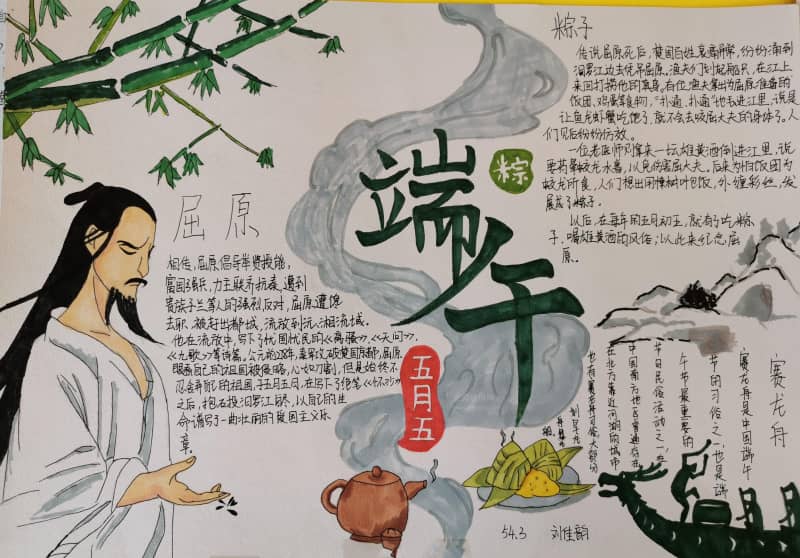 屈原
相传,屈原倡导举贤授能,
富国强兵,力主联齐抗秦,遭到
贵族子兰等人的强烈反对,屈原遭馋
去职,被赶出都城,流放到沅、湘流域。
他在流放中,写下了忧国忧民的《离骚》、《天问》、
《九歌》等诗篇,公元前278年,秦军攻破楚国京都,屈原
眼看自己的祖国被侵略,心如刀割,但是始终不
忍舍弃自己的祖国,于五月五日,在写下了绝笔《怀沙》
之后,抱石投汨罗江身终,以自己的生
命谱写了一曲壮丽的爱国主义乐
章。
端午
粽
五月五
粽子
传说屈原死后,楚国百姓哀痛异常,纷纷涌到
汨罗江边去凭吊屈原。渔夫们划起船只,在江上
来回打捞他的真身。有位渔夫拿出为屈原准备的
饭团、鸡蛋等食物,“扑通、扑通”地丢进江里,说是
让鱼龙虾蟹吃饱了,就不会去咬屈大夫的身体了。人
们见后纷纷仿效。
一位老医师则拿来一坛雄黄酒倒进江里,说
要药晕蛟龙水兽,以免伤害屈大夫。后来为怕饭团为
蛟龙所食,人们想出用楝树叶包饭,外缠彩丝,发
展成了粽子。
以后,在每年的五月初五,就有了吃粽
子、喝雄黄酒的风俗;以此来纪念屈
原。
赛龙舟
赛龙舟是中国端午
节的习俗之一,也是端
午节最重要的
节日民俗活动之一,在
中国南方地区普遍存在,
在北方靠近河湖的城市
也有赛龙舟习俗,大部分
543 刘佳韵